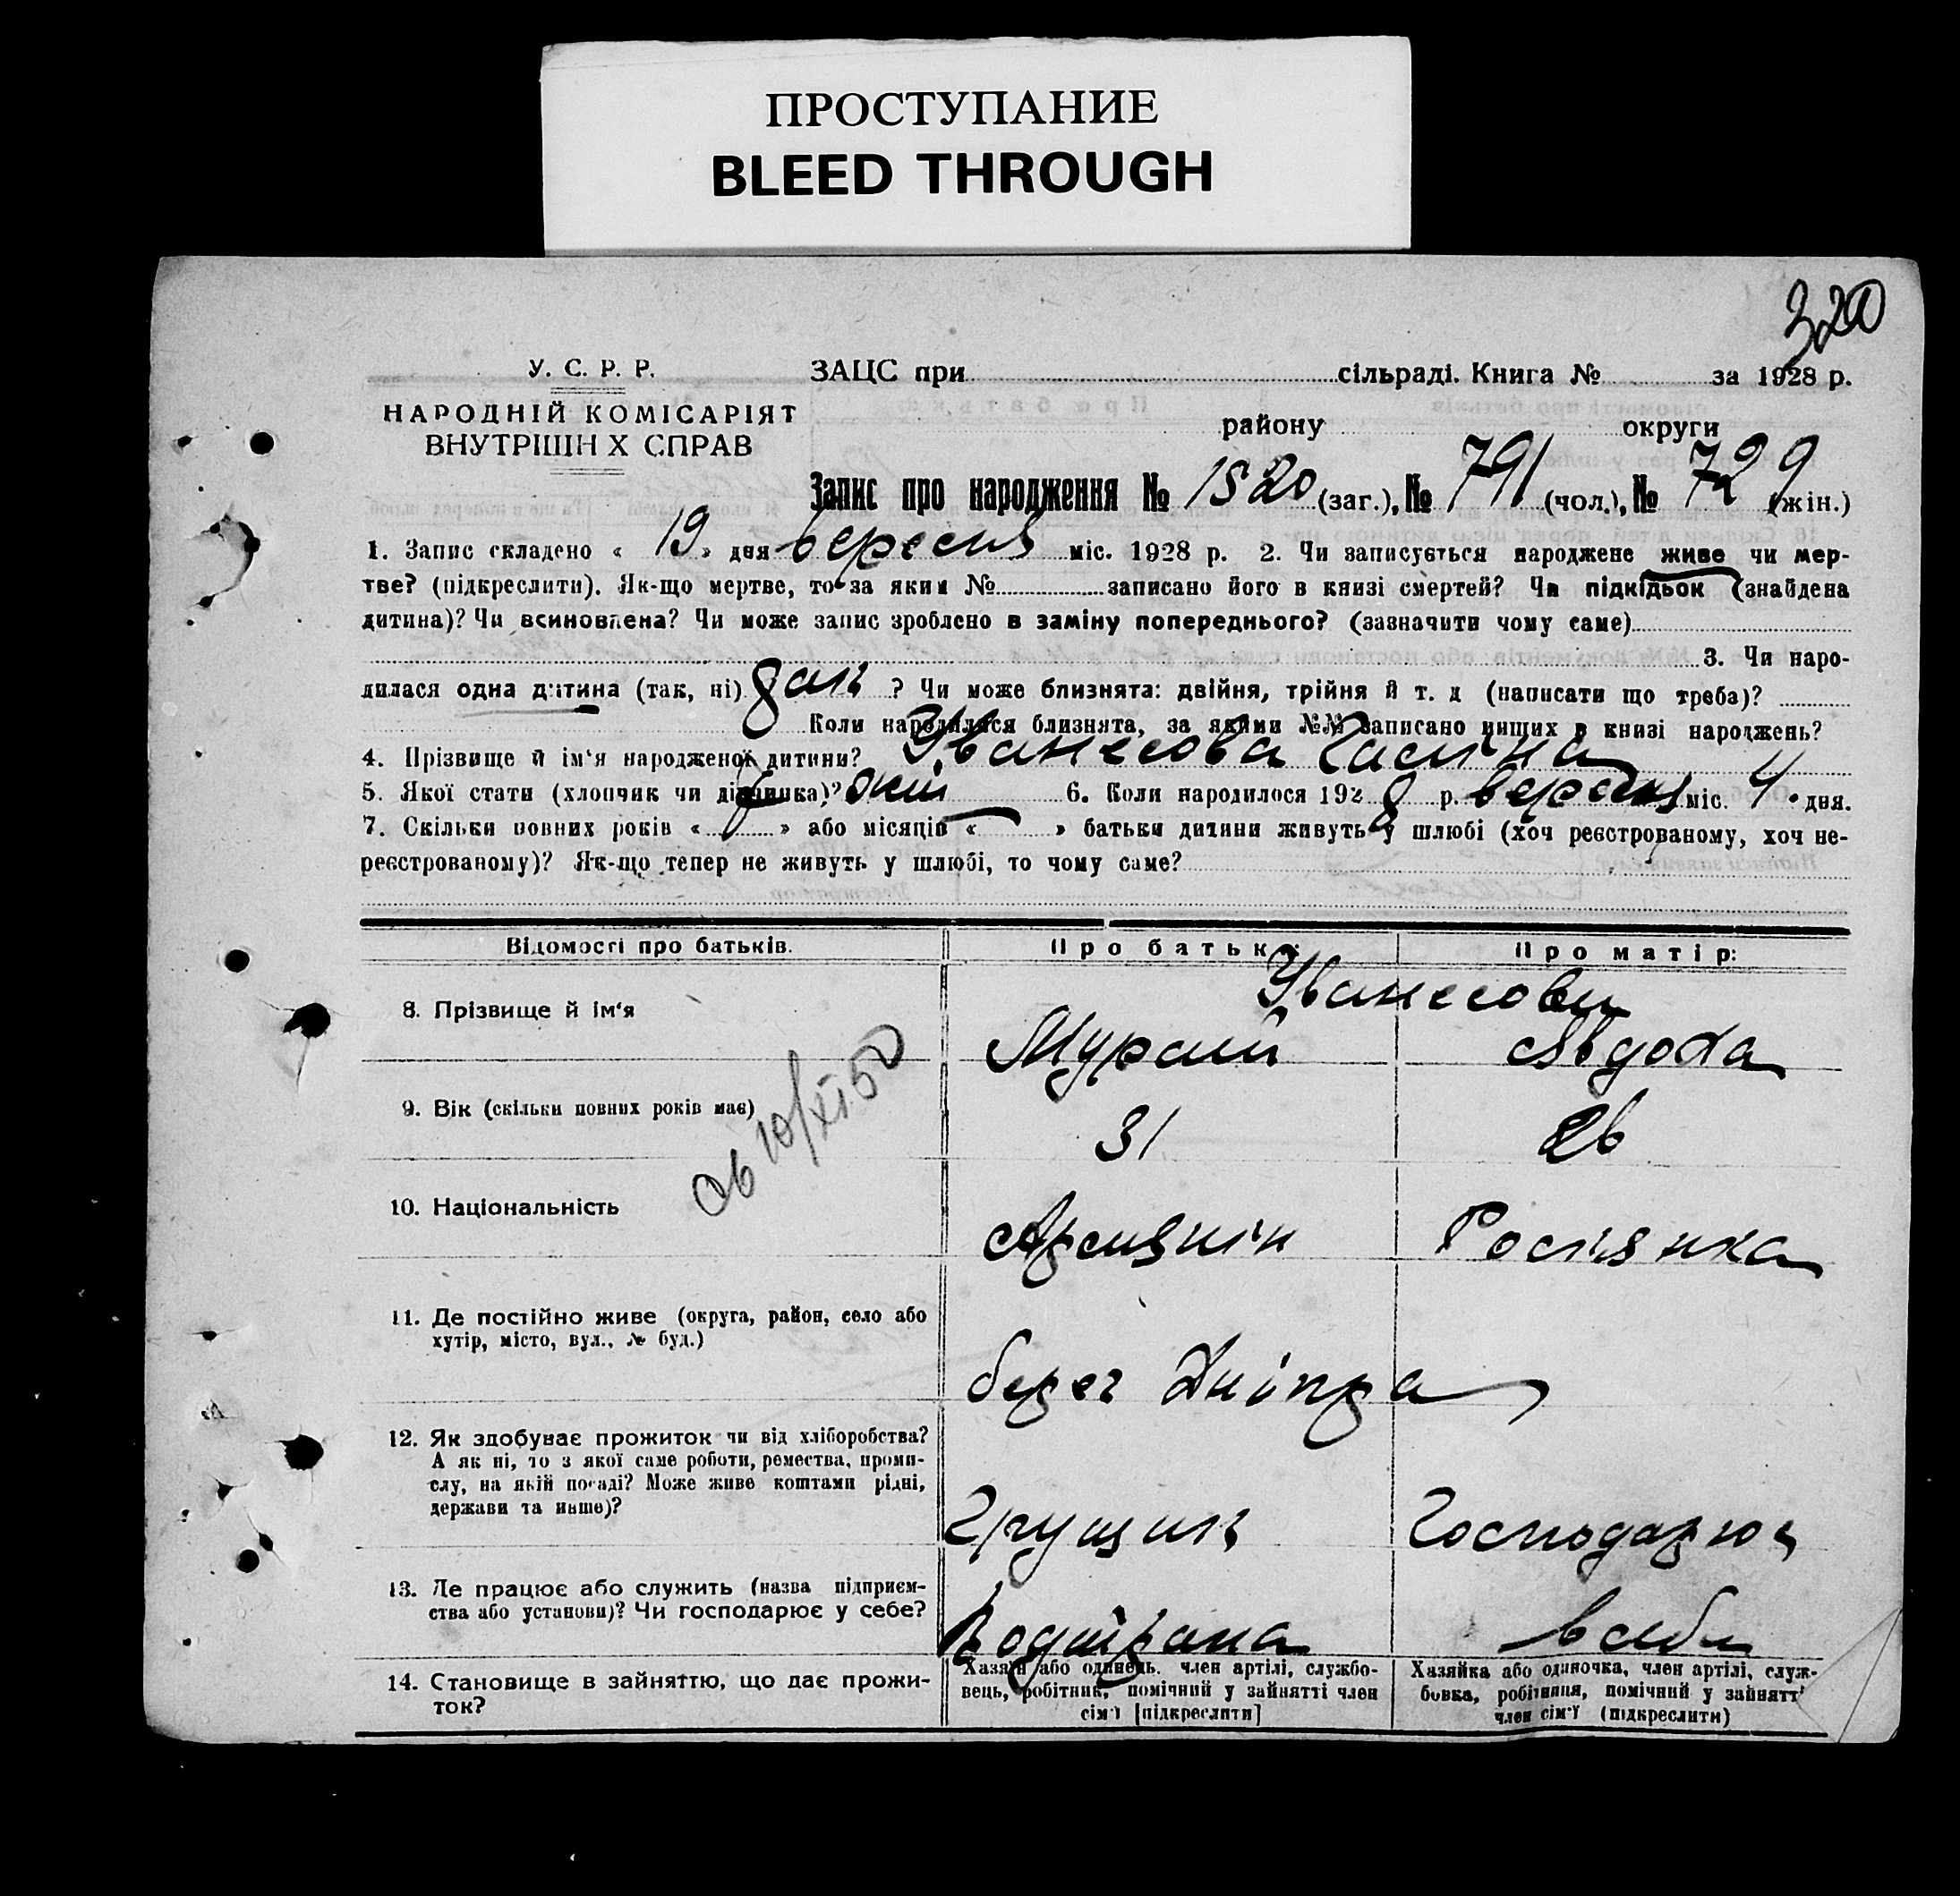 ПРОСТУПАНИЕ
BLEED THROUGH
320
У. С. Р. Р.
НАРОДНІЙ КОМІСАРІЯТ
ВНУТРІШН Х СПРАВ
ЗАЦС при сільраді. Книга № за 1928 р.
району округи
Запис про народження № 1520 (заг.), № 791 (чол.), № 729 (жін.)
1. Запис складено « 19 » дня вересня міс. 1928 р. 2. Чи записується народжене живе чи мер-
тве? (підкреслити). Як-що мертве, то за яким № записано його в книзі смертей? Чи підкідьок (знайдена
дитина)? Чи всиновлена? Чи може запис зроблено в заміну попереднього? (зазначити чому саме)
3. Чи наро-
дилася одна дитина (так, ні) ? Чи може близнята: двійня, трійня й т. д (написати що треба)?
Коли народилися близнята, за якими №№ записано инших в книзі народжень?
4. Прізвище й ім'я народженої дитини? Іванесова
5. Якої стати (хлопчик чи дівчинка)? жін 6. Коли народилося 1928 р. вересня міс. 4 дня.
7. Скільки повних років « » або місяців « » батьки дитини живуть у шлюбі (хоч реєстрованому, хоч не-
реєстрованому)? Як-що тепер не живуть у шлюбі, то чому саме?
Відомості про батьків. Про батьк : Про матір:
8. Прізвище й ім'я
Іванесови
Мурат Явдоха
9. Вік (скільки повних років має)
31 26
10/XI 50
10. Національність
Аремянін Росіянка
11. Де постійно живе (округа, район, село або
хутір, місто, вул., № буд.)
берег Дніпра
12. Як здобуває прожиток чи від хліборобства?
А як ні, то з якої саме роботи, ремества, проми-
слу, на якій посаді? Може живе коштами рідні,
держави та инше)?
Грущик Господарює
13. Де працює або служить (назва підприєм-
ства або установи)? Чи господарює у себе?
в себе
14. Становище в зайняттю, що дає прожи-
ток?
Хазяїн або одинець, член артілі, службо-
вець, робітник, помічний у зайнятті член
сім'ї [підкреслити]
Хазяйка або одиночка, член артілі, служ-
бовка, робітниця, помічний у зайнятт
член сім'ї (підкреслити)